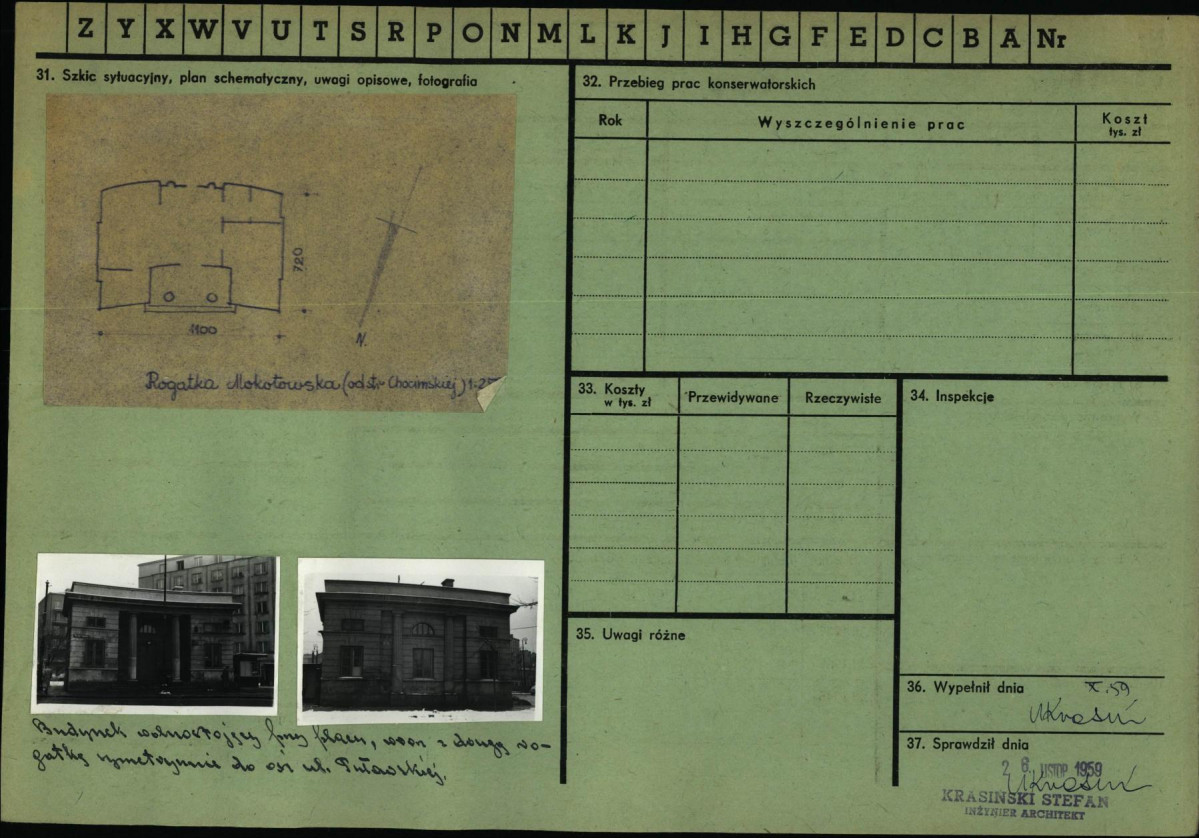 Z Y X W V U T S R P O N M L K J I H G F E D C B A Nr
31. Szkic sytuacyjny, plan schematyczny, uwagi opisowe, fotografia
720
1100
N.
Rogatka Mokotowska (od str. Chocimskiej)
Budynek wolnostojący przy placu, wraz z drugą ro-
gatką symetrycznie do osi ul. Puławskiej.
32. Przebieg prac konserwatorskich
Rok Wyszczególnienie prac Koszt
tys. zł
33. Koszty
w tys. zł
Przewidywane Rzeczywiste
34. Inspekcje
35. Uwagi różne
36. Wypełnił dnia X.59
37. Sprawdził dnia
1959
KRASIŃSKI STEFAN
INŻYNIER ARCHITEKT